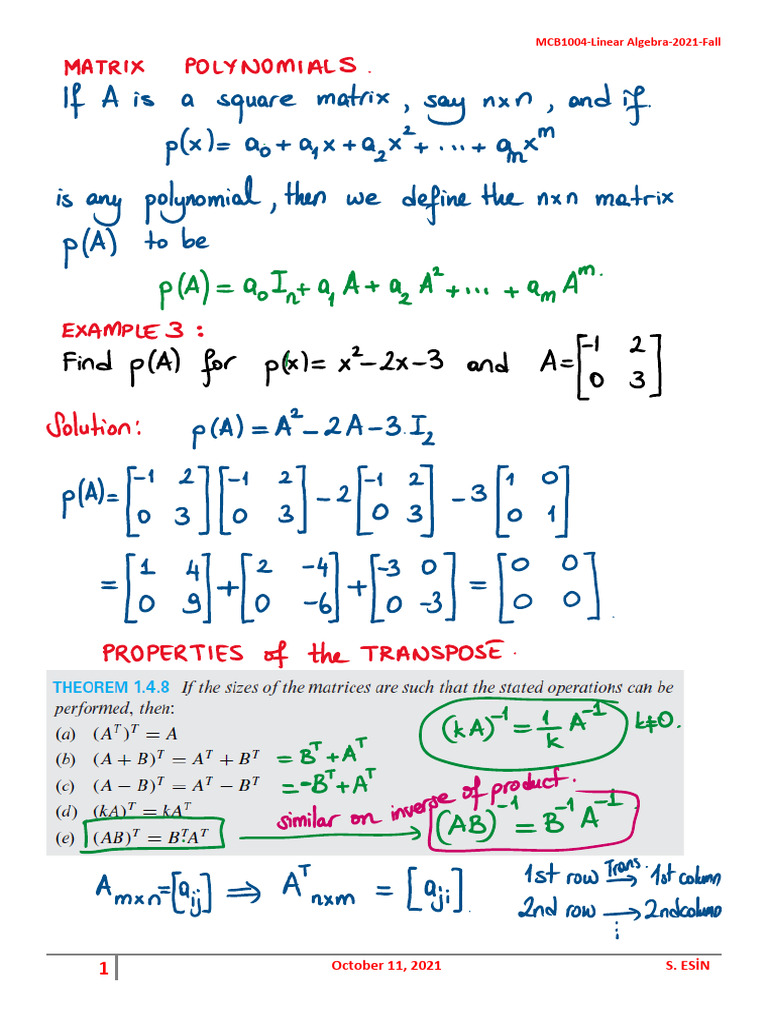 MCB1004-Linear Algebra-2021-Fall
MATRIX POLYNOMIALS.
If A is a square matrix, say nxn, and if
p(x) = a₀ + a₁x + a₂x² + ... + aₘxᵐ
is any polynomial, then we define the nxn matrix
p(A) to be
p(A) = a₀Iₙ + a₁A + a₂A² + ... + aₘAᵐ.
EXAMPLE 3:
Find p(A) for p(x) = x² - 2x - 3 and A = [-1 2; 0 3]
Solution: p(A) = A² - 2A - 3.I₂
p(A) = [-1 2; 0 3] [-1 2; 0 3] - 2 [-1 2; 0 3] - 3 [1 0; 0 1]
= [1 4; 0 9] + [2 -4; 0 -6] + [-3 0; 0 -3] = [0 0; 0 0].
PROPERTIES of the TRANSPOSE.
THEOREM 1.4.8 If the sizes of the matrices are such that the stated operations can be
performed, then:
(a) (Aᵀ)ᵀ = A
(kA)⁻¹ = 1/k A⁻¹ k≠0.
(b) (A + B)ᵀ = Aᵀ + Bᵀ = Bᵀ + Aᵀ
(c) (A − B)ᵀ = Aᵀ − Bᵀ = -Bᵀ + Aᵀ
(d) (kA)ᵀ = kAᵀ
similar on inverse of product.
(e) (AB)ᵀ = BᵀAᵀ → (AB)⁻¹ = B⁻¹A⁻¹
Aₘₓₙ = [aᵢⱼ] ⟹ Aᵀₙₓₘ = [aⱼᵢ].
1st row Trans. → 1st column
2nd row → 2nd column
⋮
1 October 11, 2021 S. ESİN